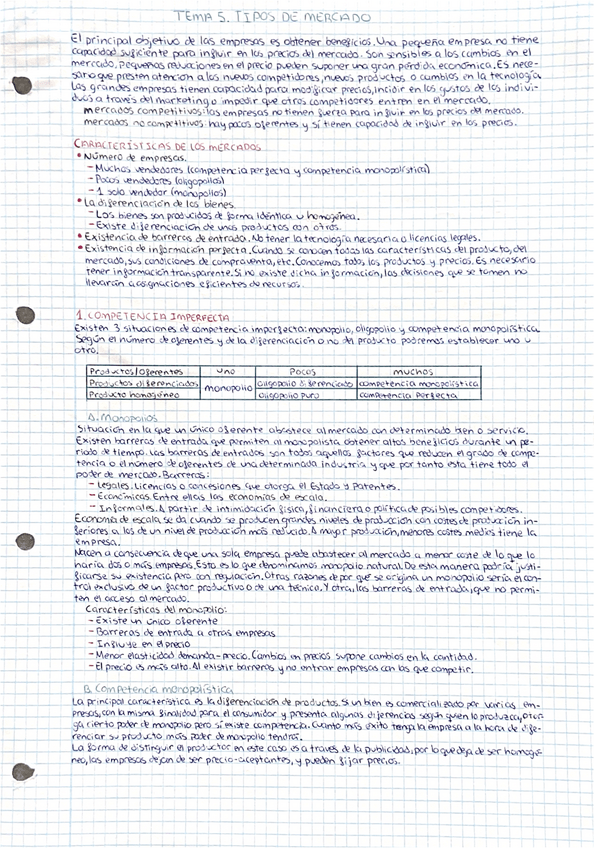 TEMA 5. TIPOS DE MERCADO
El principal objetivo de las empresas es obtener beneficios. Una pequeña empresa no tiene
capacidad suficiente para influir en los precios del mercado. Son sensibles a los cambios en el
mercado, pequeñas reducciones en el precio pueden suponer una gran pérdida económica. Es nece-
sario que presten atención a los nuevos competidores, nuevos productos o cambios en la tecnología
Las grandes empresas tienen capacidad para modificar precios, incidir en los gustos de los indivi-
duos a través del marketing o impedir que otros competidores entren en el mercado.
mercados competitivos: las empresas no tienen fuerza para influir en los precios del mercado.
mercados no competitivos: hay pocos oferentes y sí tienen capacidad de influir en los precios.
CARACTERÍSTICAS DE LOS MERCADOS
• Número de empresas.
- Muchos vendedores (competencia perfecta y competencia monopolística)
- Pocos vendedores (oligopolios)
- 1 solo vendedor (monopolios)
• La diferenciación de los bienes.
- Los bienes son producidos de forma idéntica u homogénea.
- Existe diferenciación de unos productos con otros.
• Existencia de barreras de entrada. No tener la tecnología necesaria o licencias legales.
• Existencia de información perfecta. Cuando se conocen todas las características del producto, del
mercado, sus condiciones de compraventa, etc. Conocemos todo, los productos y precios. Es necesario
tener información transparente. Si no existe dicha información, las decisiones que se tomen no
llevarán a asignaciones eficientes de recursos.
1. COMPETENCIA IMPERFECTA
Existen 3 situaciones de competencia imperfecta: monopolio, oligopolio y competencia monopolística.
Según el número de oferentes y de la diferenciación o no del producto podremos establecer uno u
otro.
Productos/Oferentes uno Pocos muchos
Productos diferenciados monopolio Oligopolio diferenciado competencia monopolística
Producto homogéneo Oligopolio Puro competencia Perfecta
A. Monopolios
Situación en la que un único oferente abastece al mercado con determinado bien o servicio.
Existen barreras de entrada que permiten al monopolista obtener altos beneficios durante un pe-
riodo de tiempo. Las barreras de entradas son todos aquellos factores que reducen el grado de compe-
tencia o el número de oferentes de una determinada industria y que por tanto esta tiene todo el
poder de mercado. Barreras:
- Legales. Licencias o concesiones que otorga el Estado y Patentes.
- Económicas. Entre ellas las economías de escala.
- Informales. A partir de intimidación física, financiera o política de posibles competidores.
Economía de escala se da cuando se producen grandes niveles de producción con costes de producción in-
feriores a los de un nivel de producción más reducido. A mayor producción, menores costes medios tiene la
empresa.
Nacen a consecuencia de que una sola empresa puede abastecer al mercado a menor coste de lo que lo
haría dos o más empresas. Esto es lo que denominamos monopolio natural. De esta manera podría justi-
ficarse su existencia pero con regulación. Otras razones de por qué se origina un monopolio sería el con-
trol exclusivo de un factor productivo o de una técnica. Y otra, las barreras de entrada, que no permi-
ten el acceso al mercado.
Características del monopolio:
- Existe un único oferente
- Barreras de entrada a otras empresas
- Influye en el precio
- Menor elasticidad demanda-precio. Cambios en precios supone cambios en la cantidad.
- El precio es más alto. Al existir barreras y no entrar empresas con las que competir.
B. Competencia monopolística
La principal característica es la diferenciación de productos. Si un bien es comercializado por varias em-
presas, con la misma finalidad para el consumidor y presenta algunas diferencias según quien lo produzca, otor-
ga cierto poder de monopolio pero sí existe competencia. Cuanto más éxito tenga la empresa a la hora de dife-
renciar su producto más poder de monopolio tendrá.
La forma de distinguir el productor en este caso es a través de la publicidad, por lo que deja de ser homogé-
neo, las empresas dejan de ser precio-aceptantes, y pueden fijar precios.